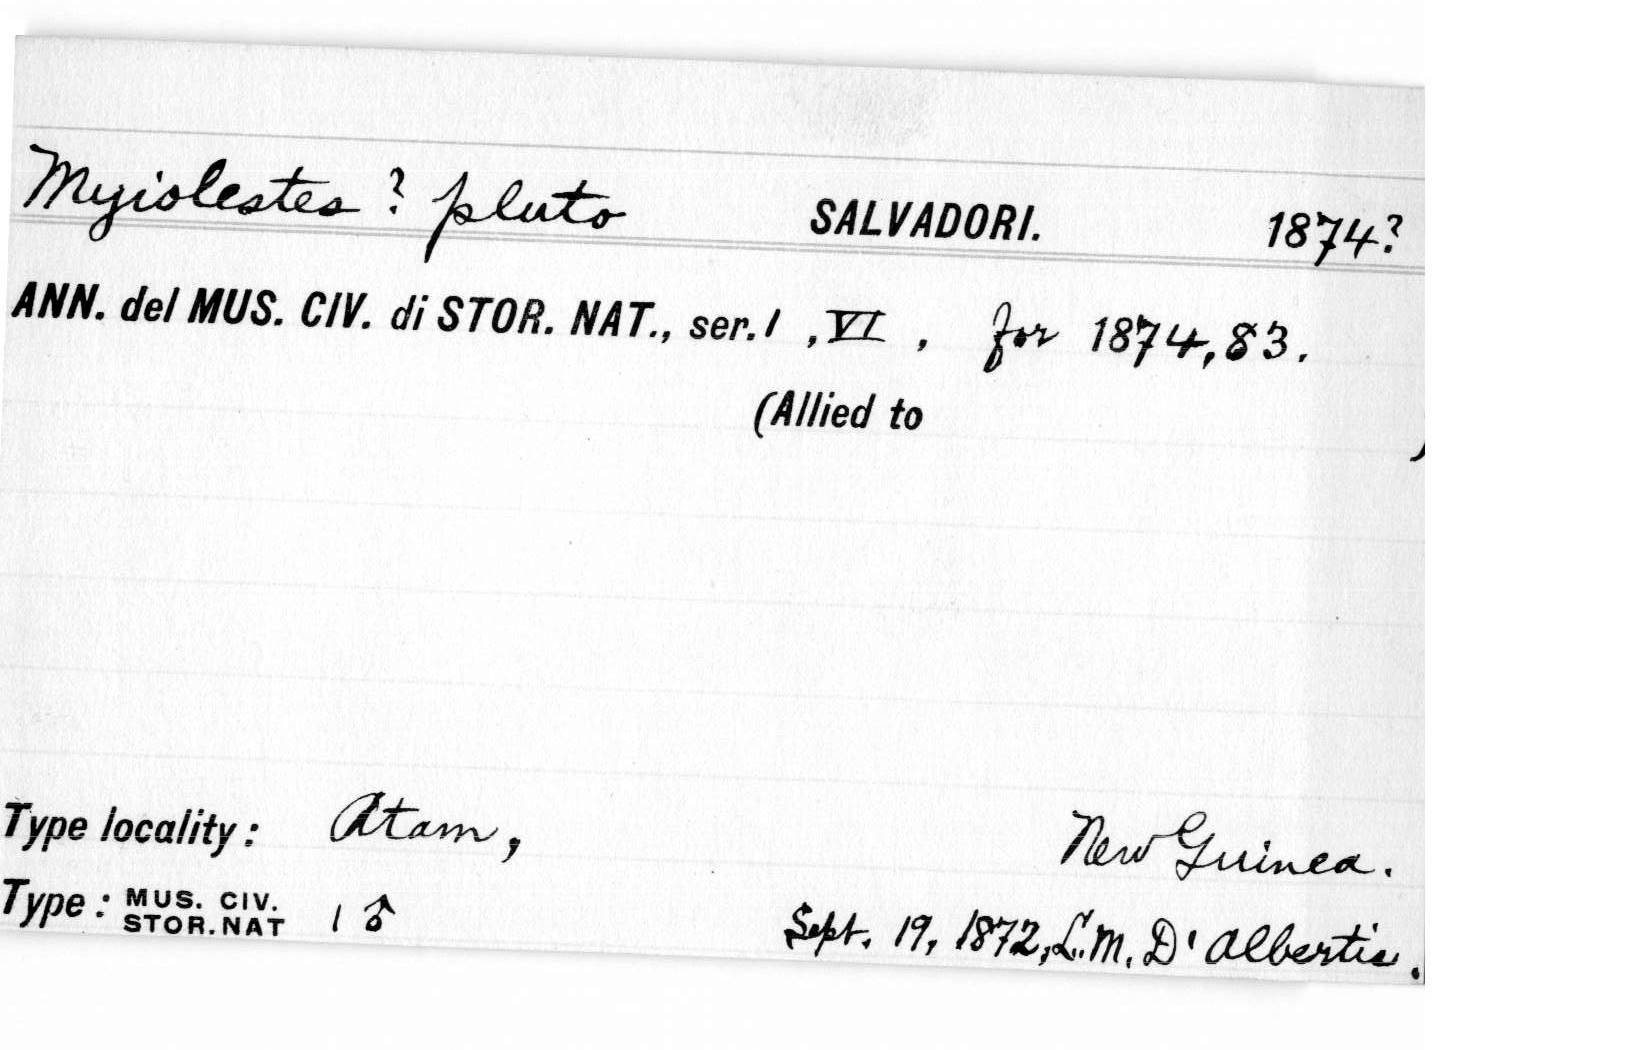 Myiolestes ? pluto SALVADORI. 1874?
ANN. del MUS. CIV. di STOR. NAT., ser. 1 , VI , for 1874, 83.
(Allied to )
Type locality: Atam, New Guinea.
Type: MUS. CIV. STOR. NAT 1 ♂ Sept. 19, 1872, L.M. D'Albertis.